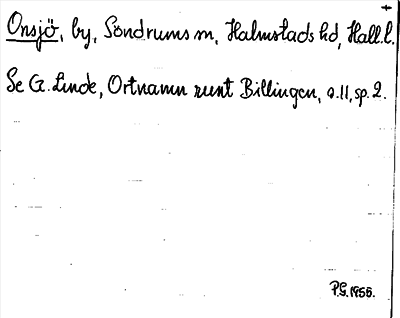 Onsjö, by, Söndrums sn, Halmstads hd, Hall.l.
Se G. Linde, Ortnamn runt Billingen, s.11, sp.2.
P.G. 1955.